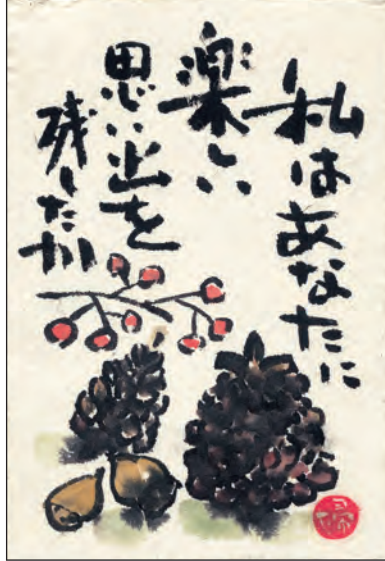 私はあなたに
楽しい
思い出を
残したか